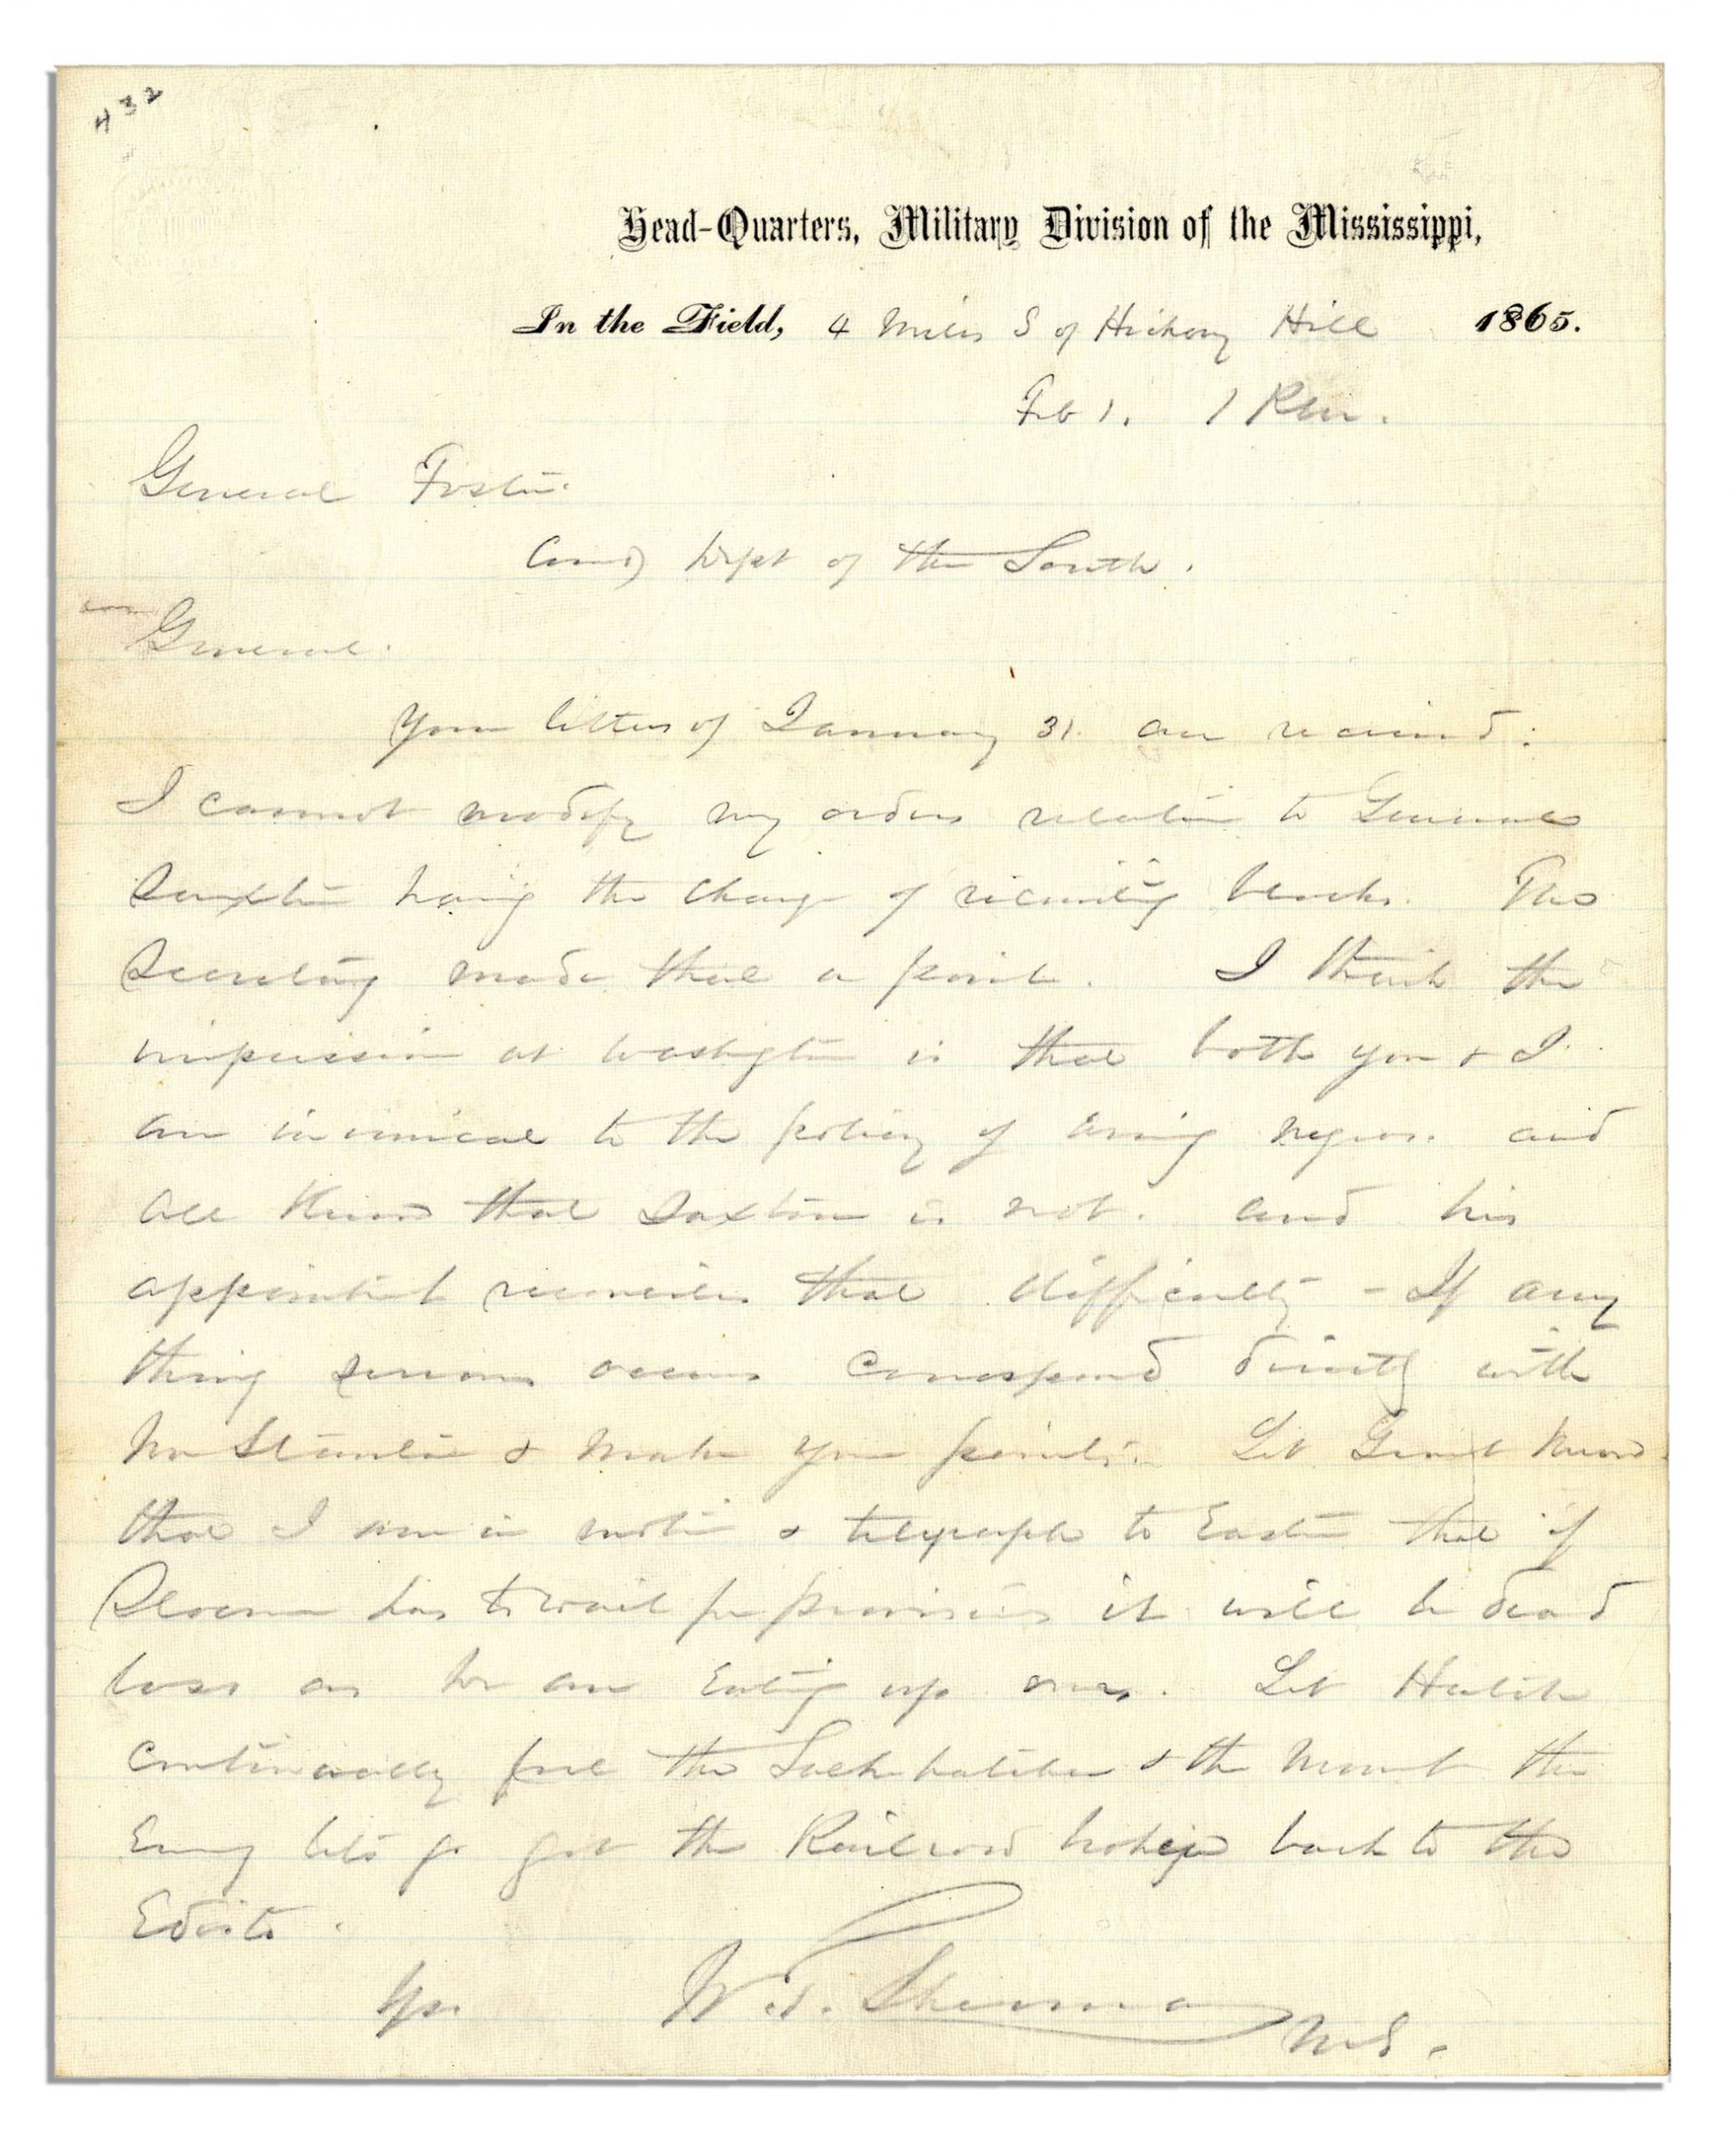 432
Head-Quarters, Military Division of the Mississippi,
In the Field, 4 Miles S of Hickory Hill 1865.
Feb 1. 1 P.M.
General Foster.
Comd Dept of the South.
General.
Your letters of January 31 are received:
I cannot modify my orders relative to General
Saxton having the charge of recruiting blacks. The
Secretary made that a point. I think the
impression at Washington is that both you & I
are inimical to the policy of arming negroes and
all know that Saxton is not. and his
appointment reconciles that difficulty - If any
thing serious occurs correspond directly with
Mr Stanton & make your points. Let Grant know
that I am in motion & telegraph to Easton that if
Slocum has to wait for provisions it will be dead
loss as we are Eating up ours. Let Hatch
continually feel the Salkehatchie & the moment the
Enemy lets go get the Railroad broken back to the
Edisto.
Yrs. W. T. Sherman
M.G.